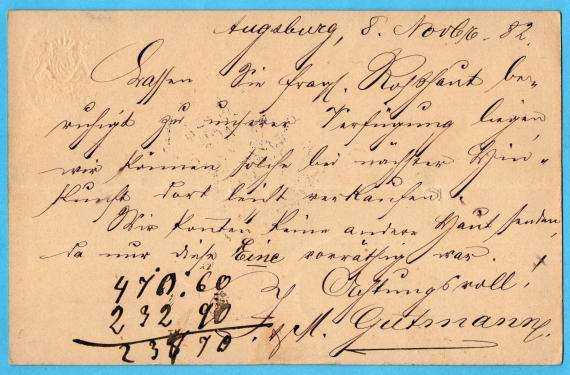 Augsburg, 8. Novbr. 82.
Lassen Sie fragl. Roßhaut be-
ruhigt zu unserer Verfügung liegen,
wir können solche bei nächster
dort leicht verkaufen.
Wir konnten keine andere Haut senden,
da nur diese Eine vorräthig war.
470.60 Achtungsvoll,
232 90
238 70 M. Gutmann